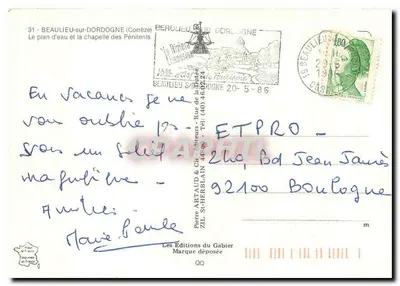 31 - BEAULIEU-sur-DORDOGNE (Corrèze)
Le plan d'eau et la chapelle des Pénitents.
BEAULIEU SUR DORDOGNE
BEAULIEU S/ DORDOGNE 20-5-86
1,80
19 BEAULIEU
En vacances je ne
vous oublie pas -
Sous un soleil
magnifique -
Amitiés
Marie Paule
ETPRO -
240, Bd Jean Jaurès
92100 Boulogne
Pierre ARTAUD & Cie
ZIL ST-HERBLAIN 44
Les Editions du Gabier
Marque déposée